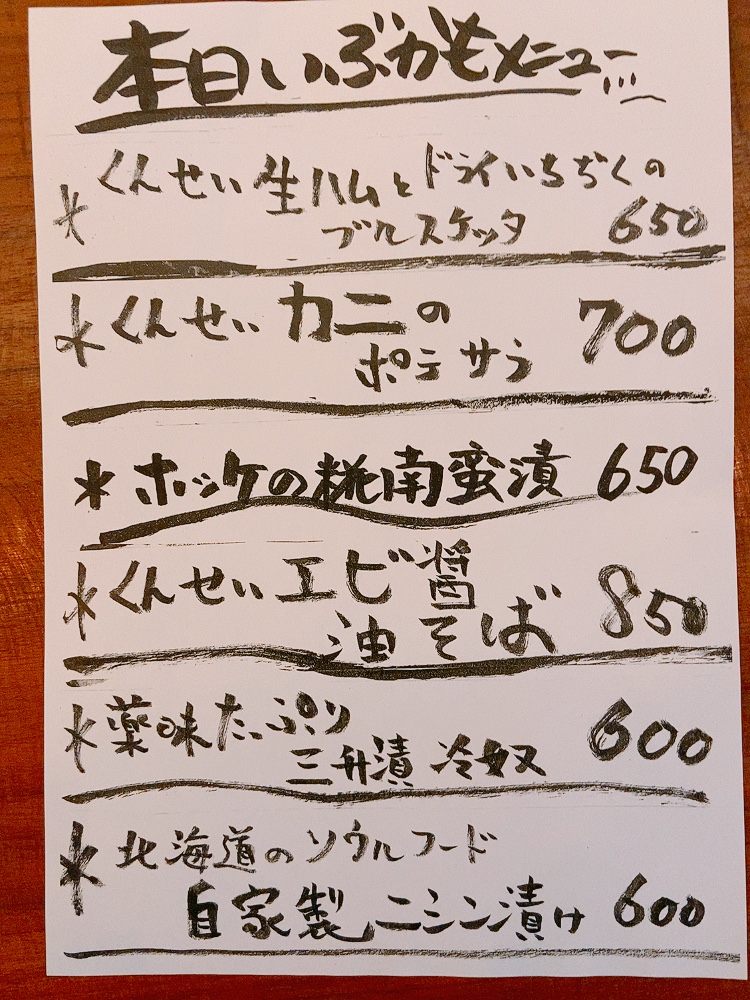 本日いぶかもメニュー...
* くんせい生ハムとドライいちぢくの
ブルスケッタ 650
* くんせい カニの
ポテサラ 700
* ホッケの糀南蛮漬 650
* くんせい エビ醤
油そば 850
* 薬味たっぷり
三升漬 冷奴 600
* 北海道のソウルフード
自家製ニシン漬け 600